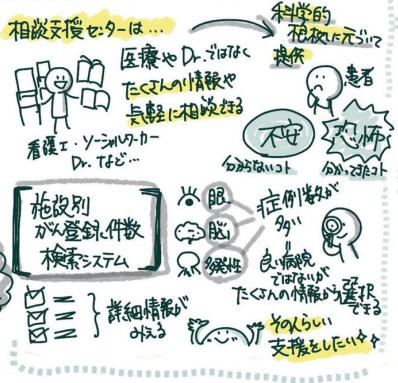 相談支援センターは…
科学的
根拠に元づいて
提供
医療やDr.ではなく
たくさんの情報や
気軽に相談できる
看護士・ソーシャルワーカー
Dr.など…
患者
不安
恐怖
分からないコト
分かってきたコト
施設別
がん登録件数
検索システム
眼
脳
多発性
症例数が
多い
良い病院
ではないが
たくさんの情報が選択
できる
詳細情報が
みえる
その人らしい
支援をしたい